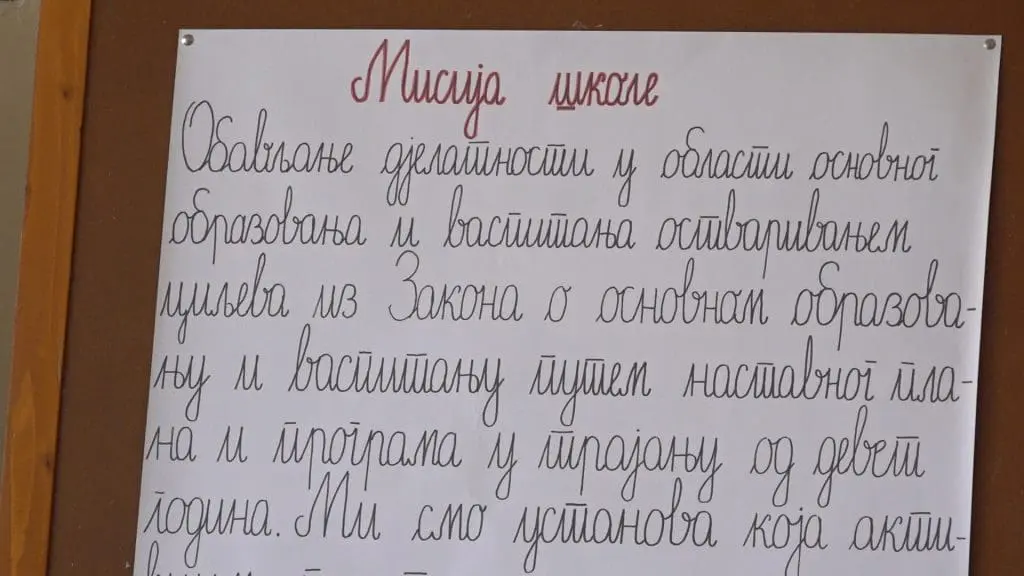 Мисија школе
Обављање дјелатности у области основног
образовања и васпитања остваривањем
циљева из Закона о основном образова-
њу и васпитању путем наставног пла-
на и програма у трајању од девет
година. Ми смо установа која акти-